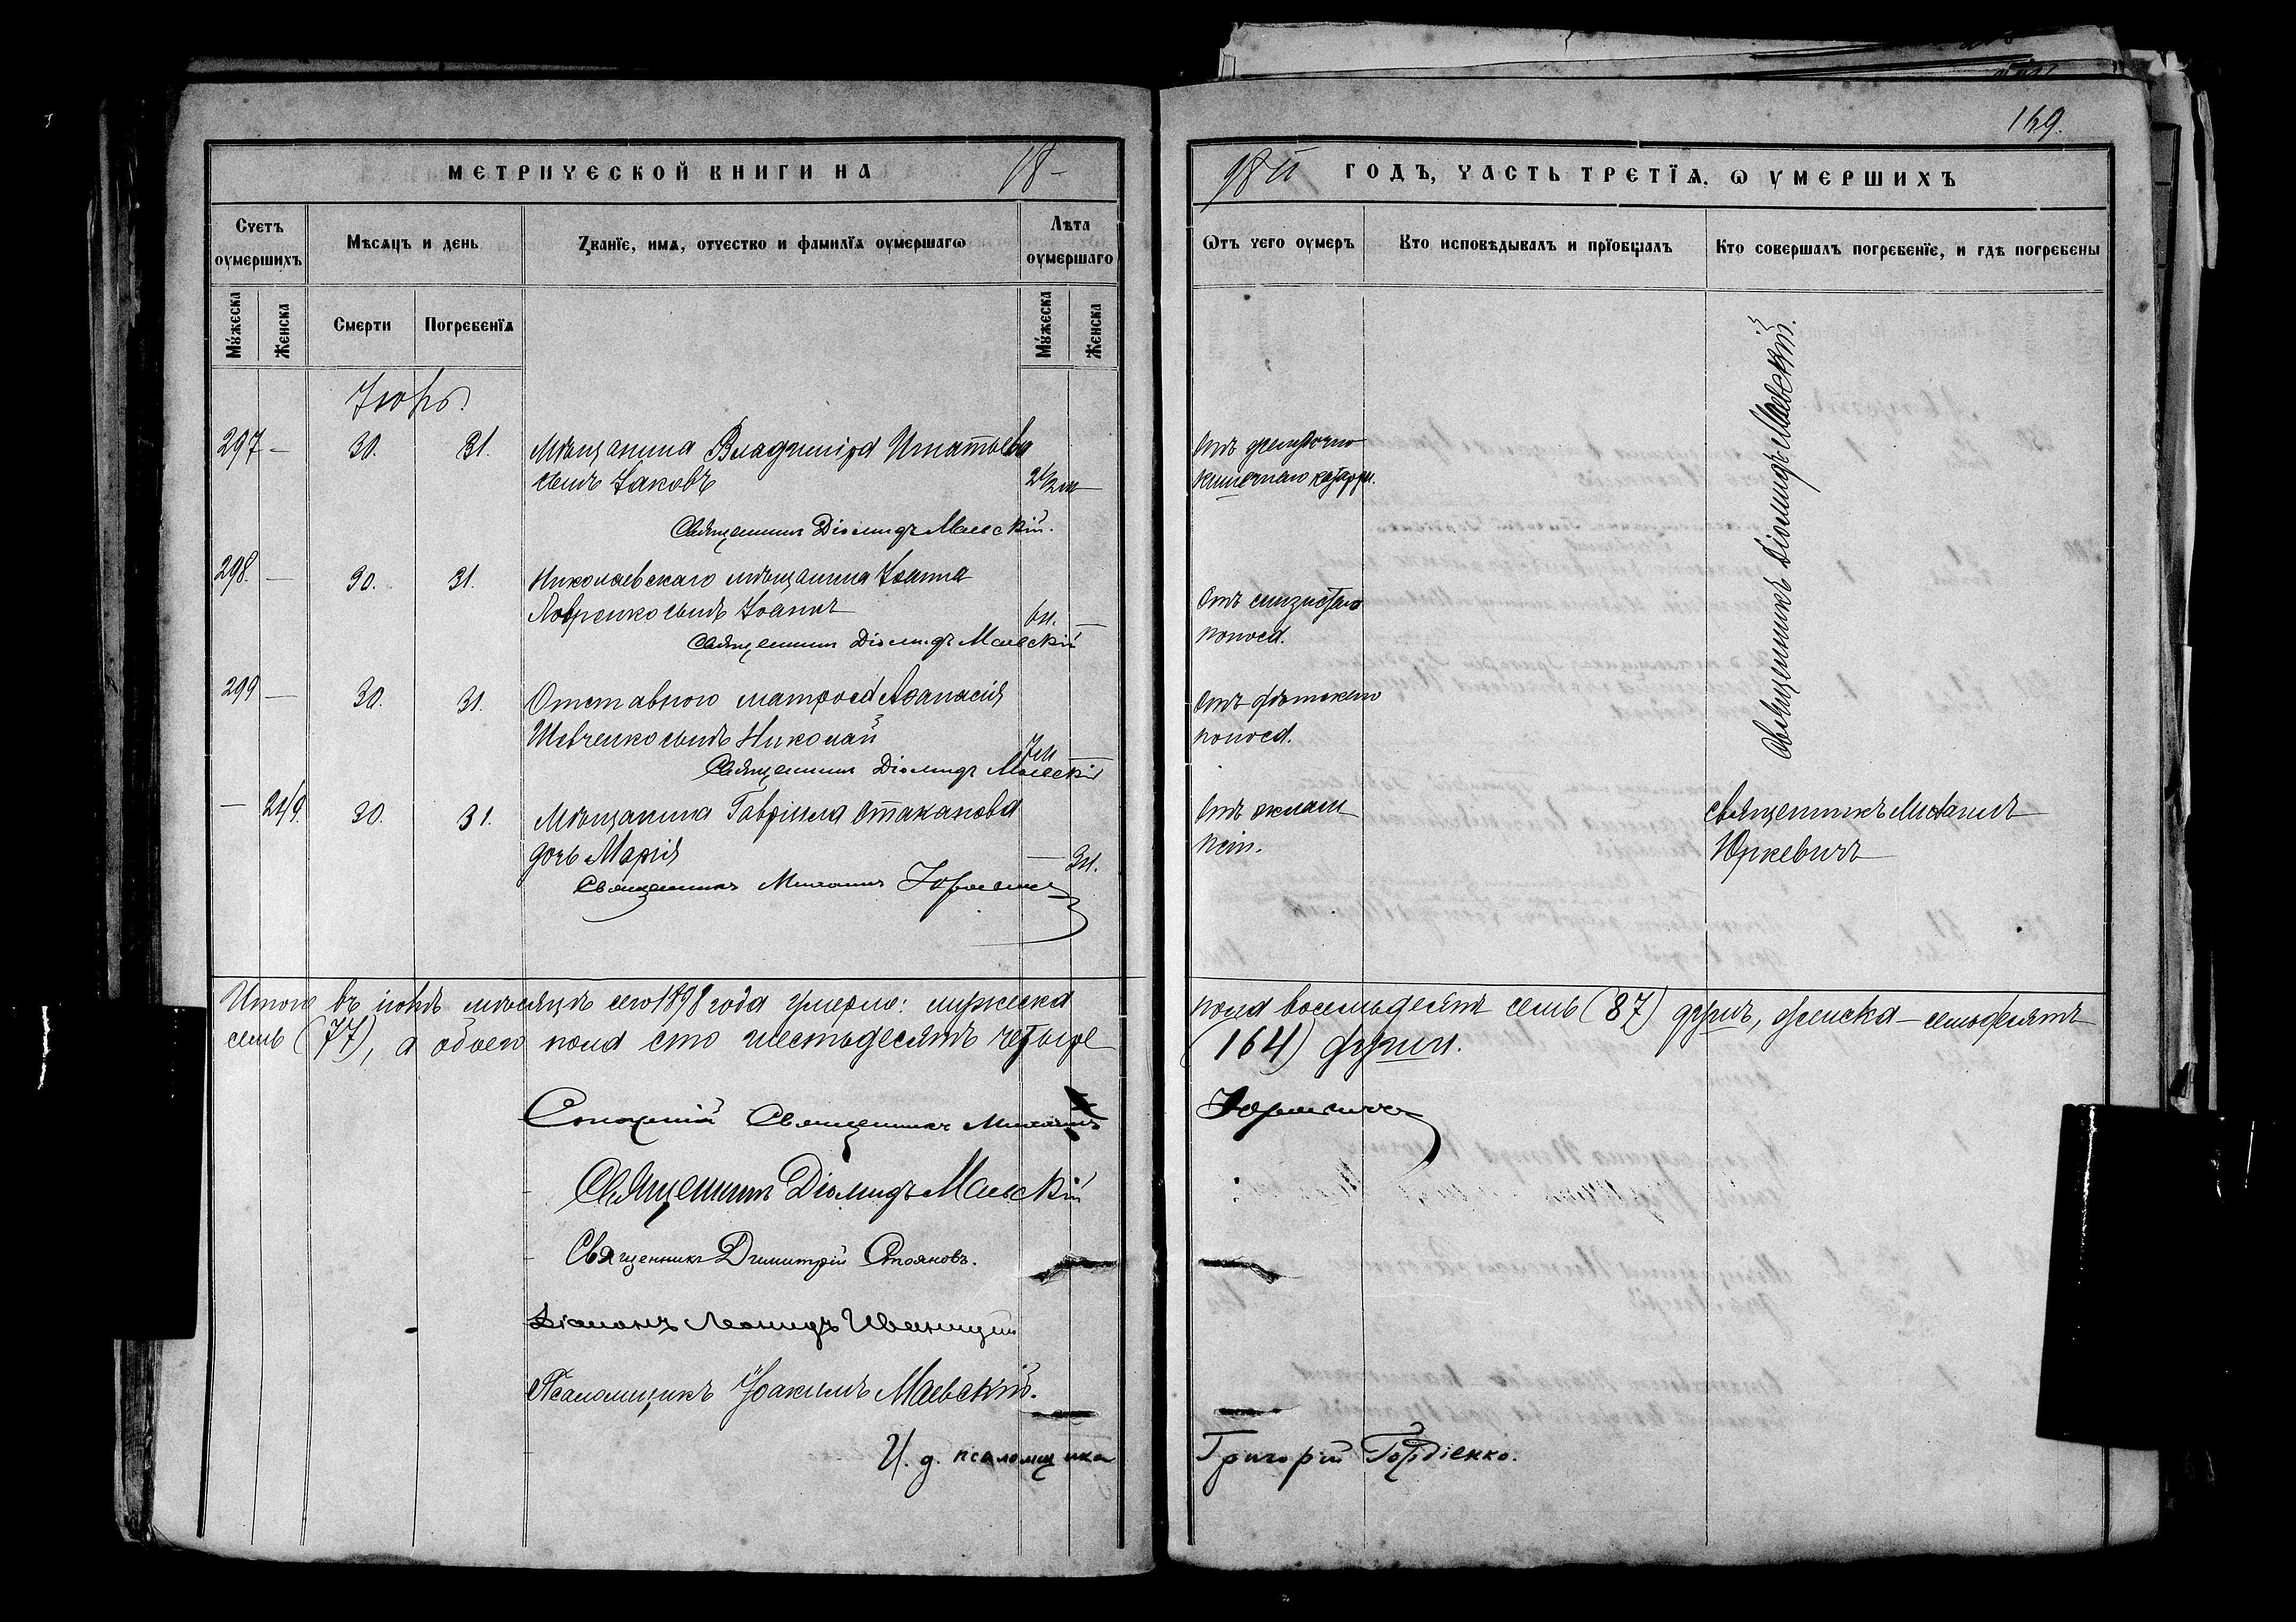 169.
МЕТРИЧЕСКОЙ КНИГИ НА 18-
98й ГОДЪ, ЧАСТЬ ТРЕТЇѦ, Ѡ ѸМЕРШИХЪ
Счетъ ѹмершихъ
Мѣсѧцъ и день
Ꙁванїе, имѧ, отчество и фамилїѧ ѹмершагѡ
Лѣта ѹмершаго
Ѿтъ чего ѹмеръ
Кто исповѣдывалъ и прїобщалъ
Кто совершалъ погребенїе, и гдѣ погребены
Мꙋжеска
Женска
Смерти
Погребенїѧ
Мꙋжеска
Женска
Іюль.
297 - 30. 31. Мѣщанина Владиміра Игнатьева
сынъ Іаковъ 2½ м
Отъ желудочно
кишечнаго катарра.
Священникъ Діомидъ Маевскій.
298. - 30. 31. Николаевскаго мѣщанина Іоанна
сынъ Іоаннъ 6м. -
Отъ слизистаго
поноса.
Священникъ Діомидъ Маевскій
299 - 30. 31. Отставного матроса Аѳанасія
Шевченко сынъ Николай 7м -
Отъ дѣтскаго
поноса.
Священникъ Діомидъ Маевскій
Священникъ Діомидъ Маевскій.
- 30. 31. Мѣщанина Гавріила Стаканова
дочь Марія - 3м.
Отъ эклам
псіи.
Священникъ Михаилъ
Юркевичъ
Священникъ Михаилъ Юркевичъ
Итого въ іюлѣ мѣсяцѣ сего 1898 года умерло: мужеска пола восемьдесятъ семь (87) душъ, женска - семьдесятъ
семь (77), а обоего пола сто шестьдесятъ четыре (164) души.
Священникъ Михаилъ Юркевичъ
Священникъ Діомидъ Маевскій
Священникъ Димитрій Стояновъ.
Діаконъ Леонидъ Иваницкій
Псаломщикъ Іоакимъ Маевскій.
И. д. псаломщика Григорій Гордіенко.